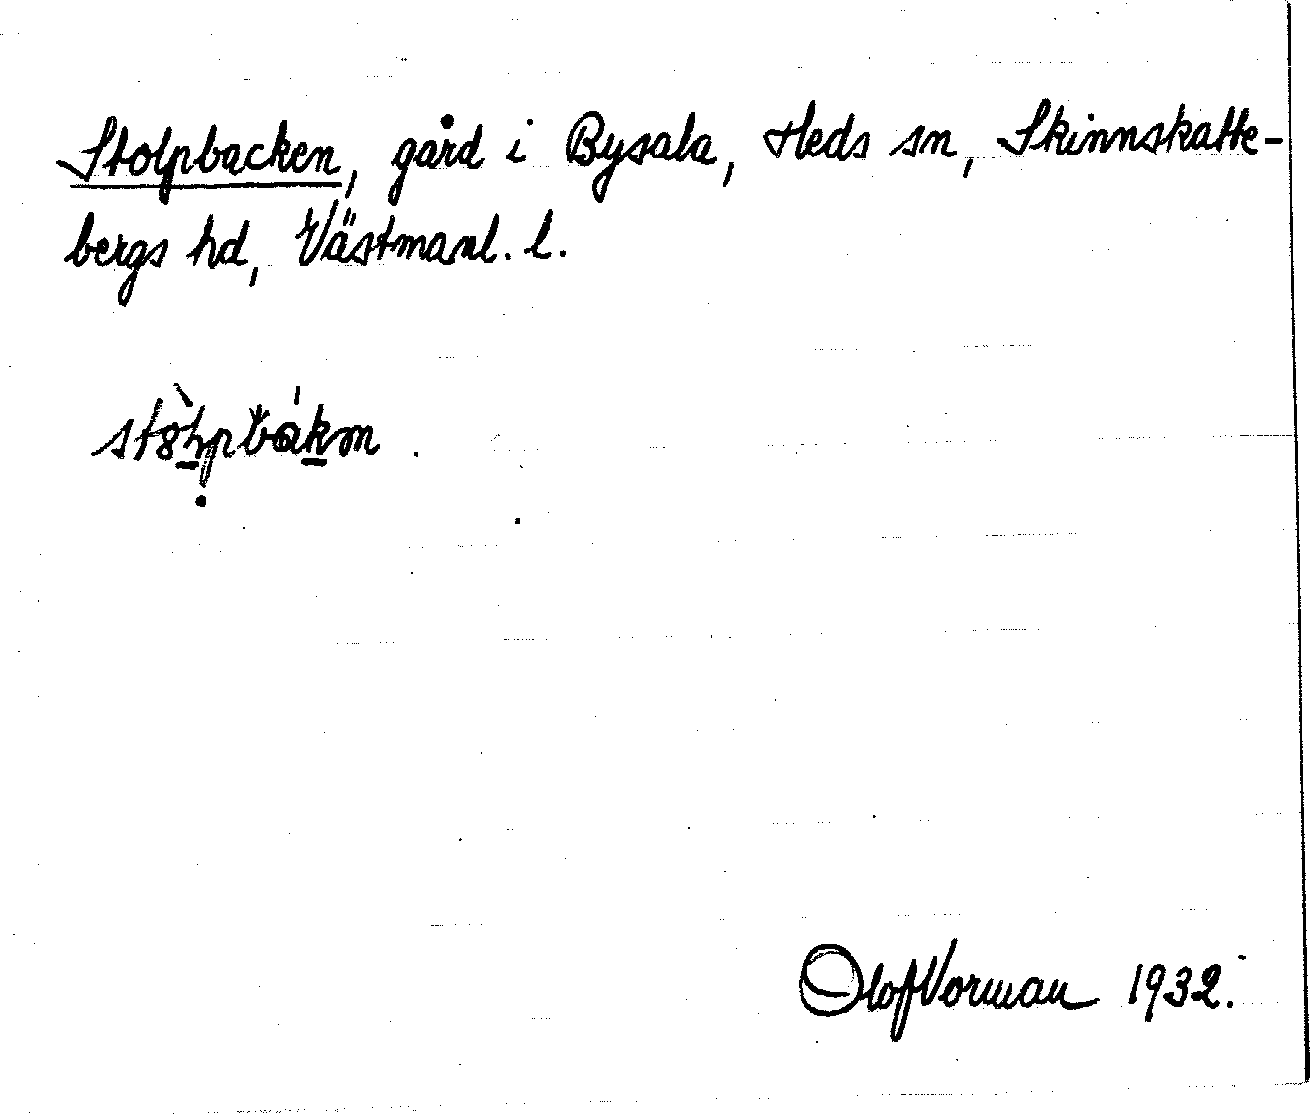 Stolpbacken, gård i Bysala, Heds sn, Skinnskatte-
bergs hd, Västmanl. l.
Olof Vorman 1932.